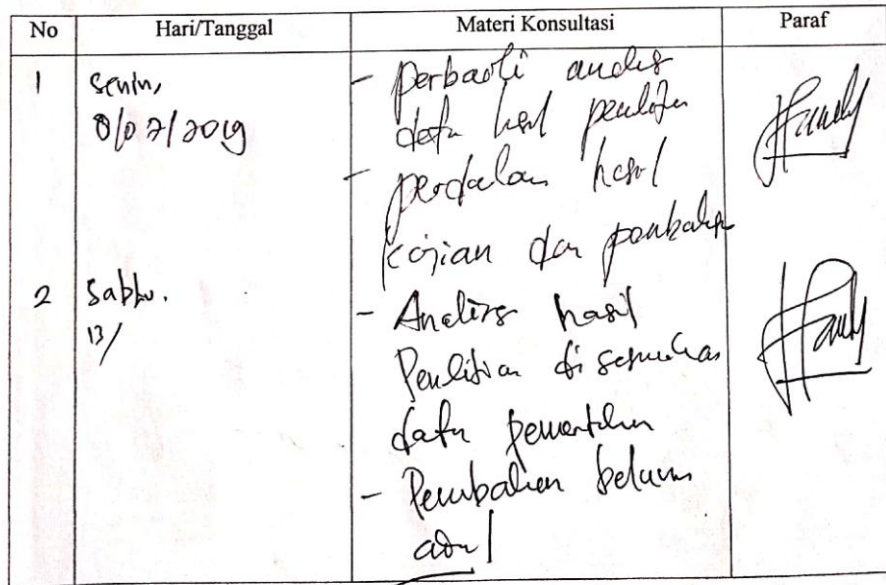 No Hari/Tanggal Materi Konsultasi Paraf
1 Senin, - perbaiki analisis
8/07/2019 data hasil penelitian
- perdalam hasil
kajian dan pembahasan
2 Sabtu. - Analisis hasil
13/ Penelitian di sesuaikan
data
- Pembahasan belum
ada